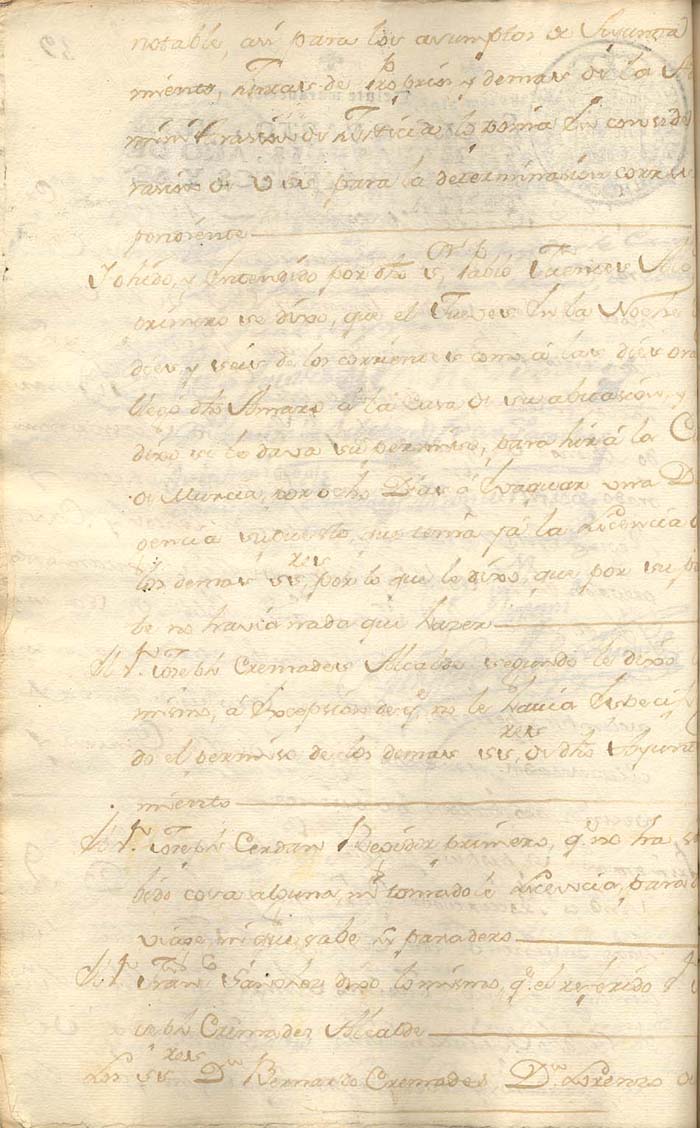 notable, asi para los asumptos de Su Junta
miento, Rentas de Proprios y demas de la A
ministrasion de Justicia lo ponia en conside
rasion de Us. para la determinasion corres
pondiente
Y ohido, y entendido por dho Sr, Pablo Fuentes Alc
primero se dixo, que el Jueves en la Noche
dies y seis de los corrientes como á las dies ora
llegó dho Amaro á la Casa de su abitasion, y
dixo se le dava su permiso, para hir á la C
de Murcia, por ocho Dias á evaquar una D
gencia supuesto, que tenia ya la Licencia
los demas SSres, por lo que le dixo, que por su p
te no havia nada que hazer
El Sr. Joseph Cremades Alcalde segundo le dixo
mismo, á exsepsion de q no le havia especi
do el permiso de los demas SSres, de dho Ayunt
miento
El Sr. Joseph Cerdan Regidor primero, q. no ha sa
bido cosa alguna, ni tomado Licencia, para
viaje, ni que sabe su paradero
El Sr. Fran.co Sanchez dixo lo mismo, q. el referido J
seph Cremades Alcalde
Los SSres Dn Bernardo Cremades, Dn Lorenzo